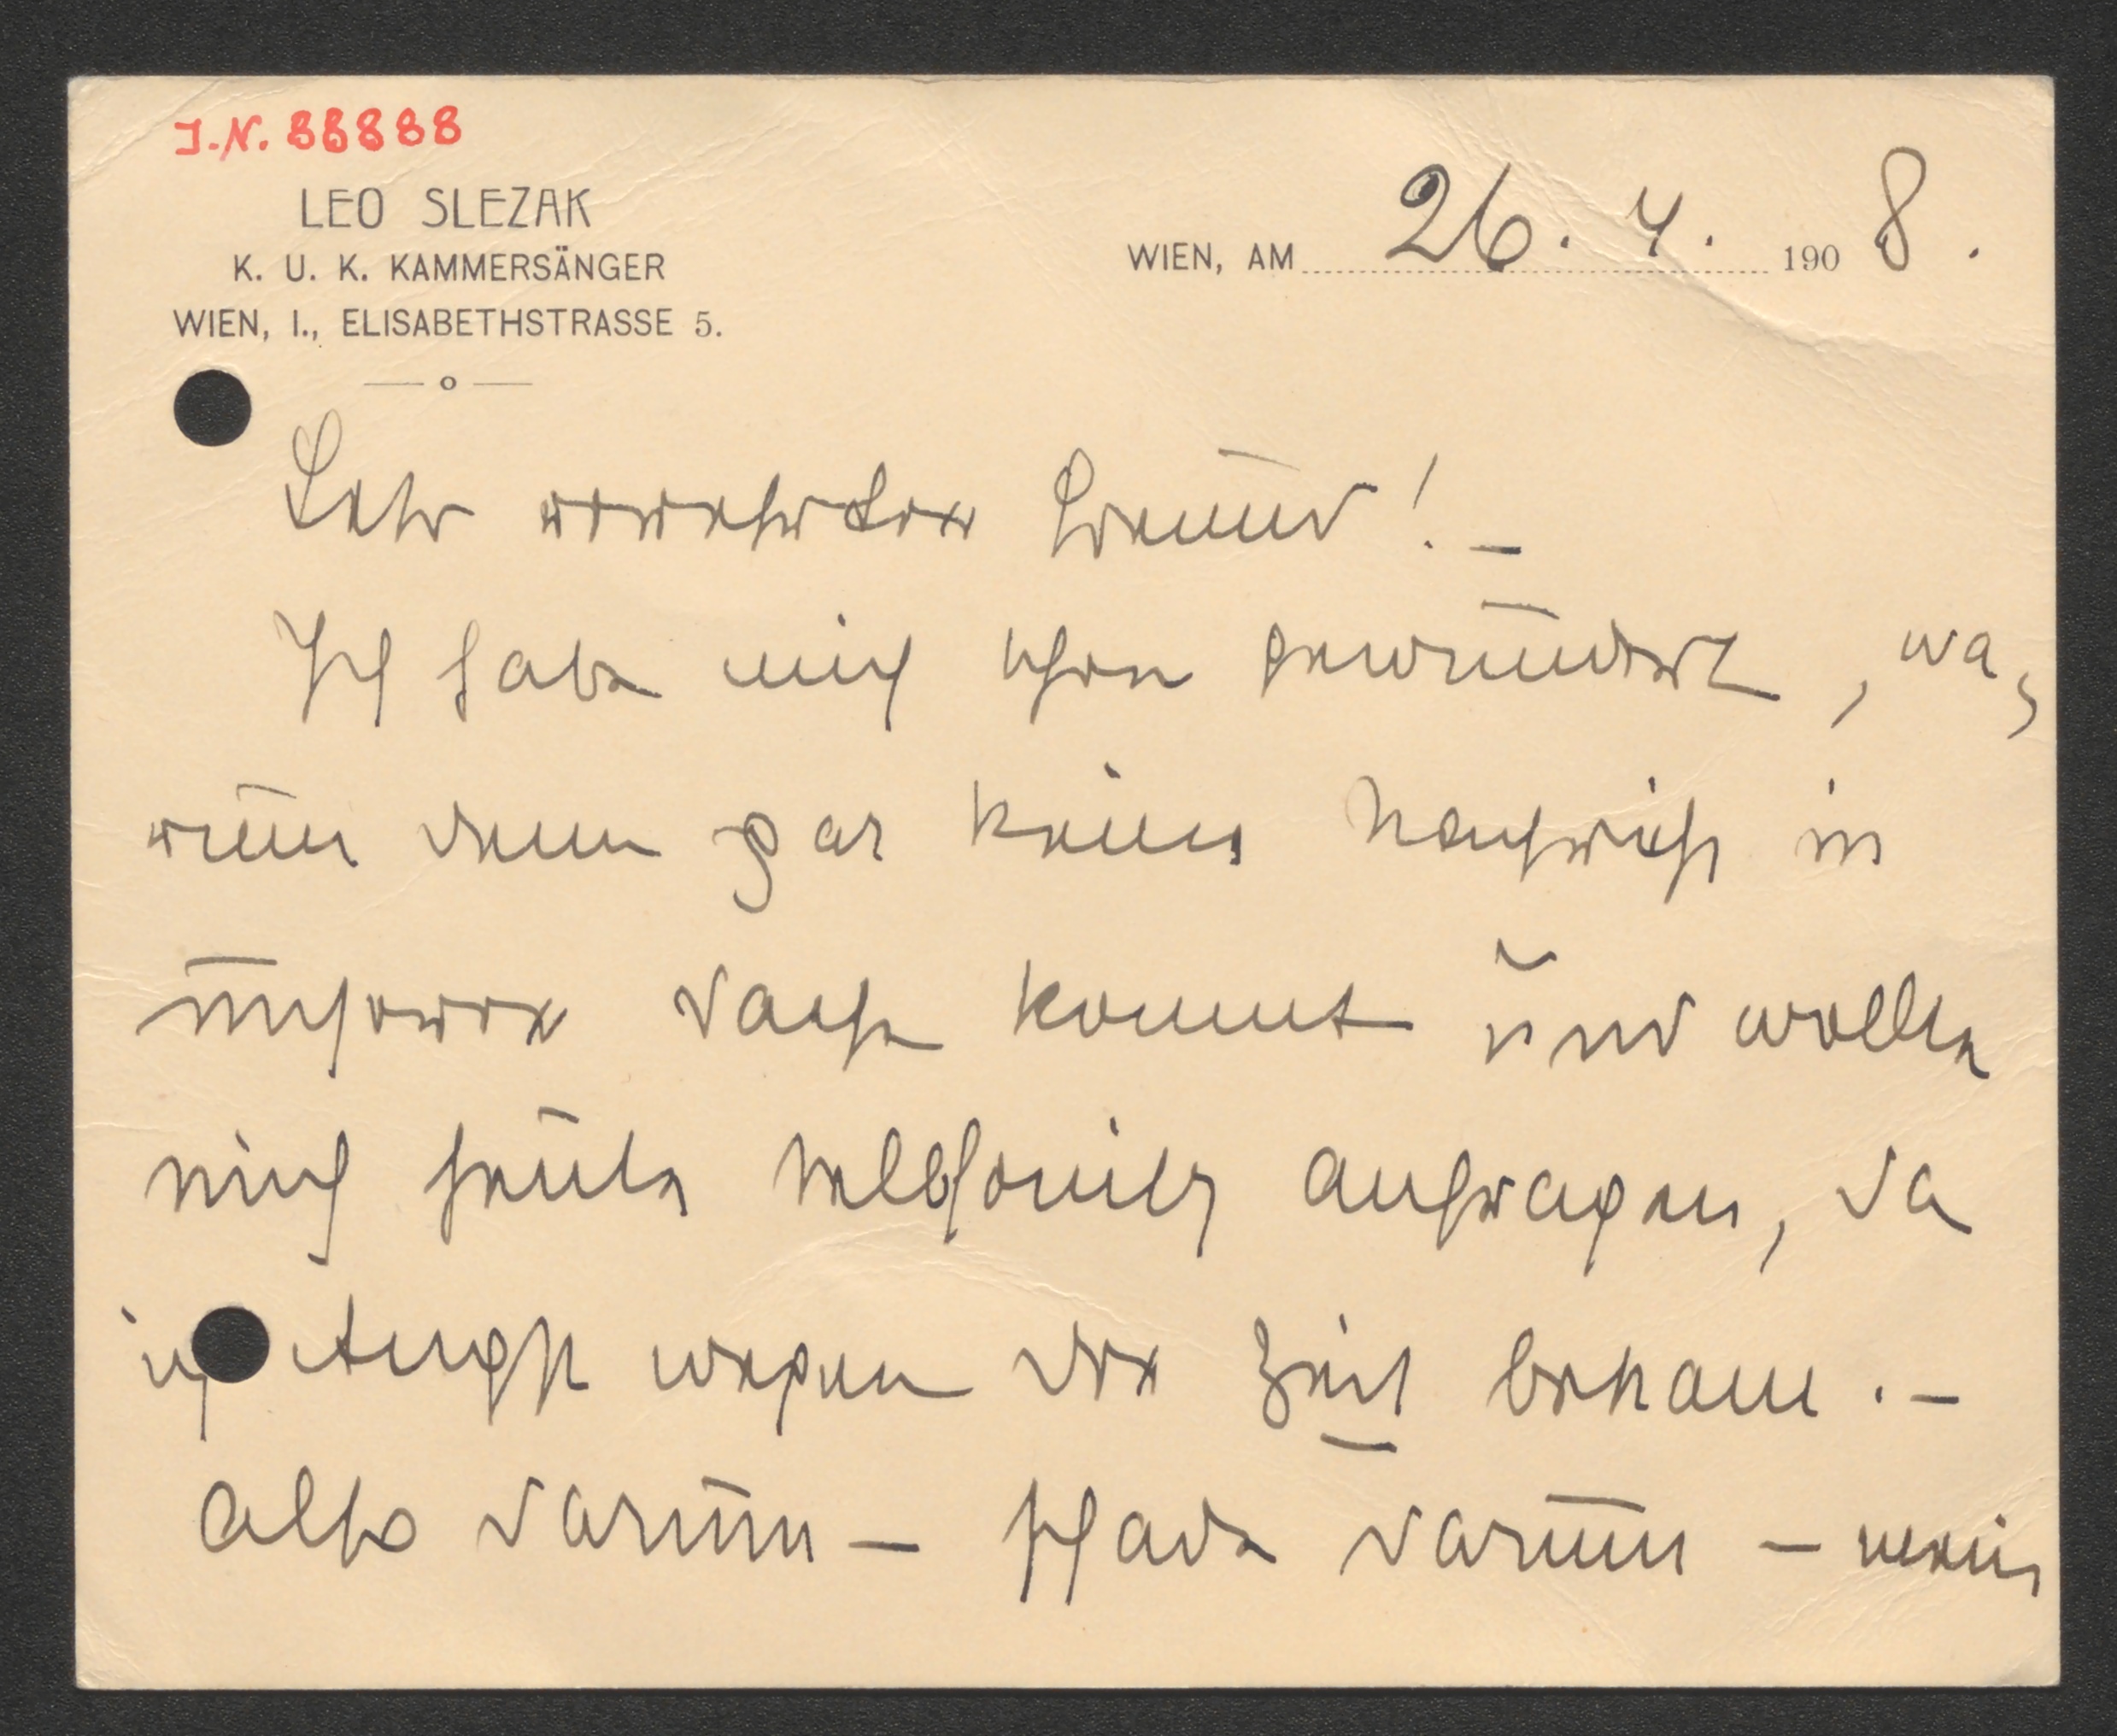 J.N. 88888
LEO SLEZAK
K. U. K. KAMMERSÄNGER
WIEN, I., ELISABETHSTRASSE 5.
WIEN, AM 26. 4. 1908.
Sehr verehrter Freund! –
Ich habe mich schon gewundert, wa,
rum denn gar keine Nachricht in
unserer Sache kommt und wollte
mich heute telefonisch anfragen, da
ich Angst wegen der Zeit bekam. –
Also darum – schade darum – meine